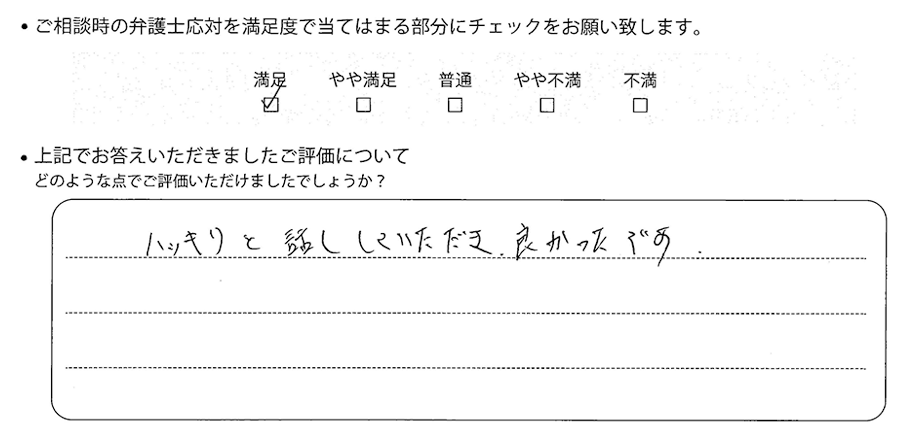 • ご相談時の弁護士応対を満足度で当てはまる部分にチェックをお願い致します。
満足 やや満足 普通 やや不満 不満
☑ □ □ □ □
• 上記でお答えいただきましたご評価について
どのような点でご評価いただけましたでしょうか？
ハッキリと話ししていただき、良かったです.